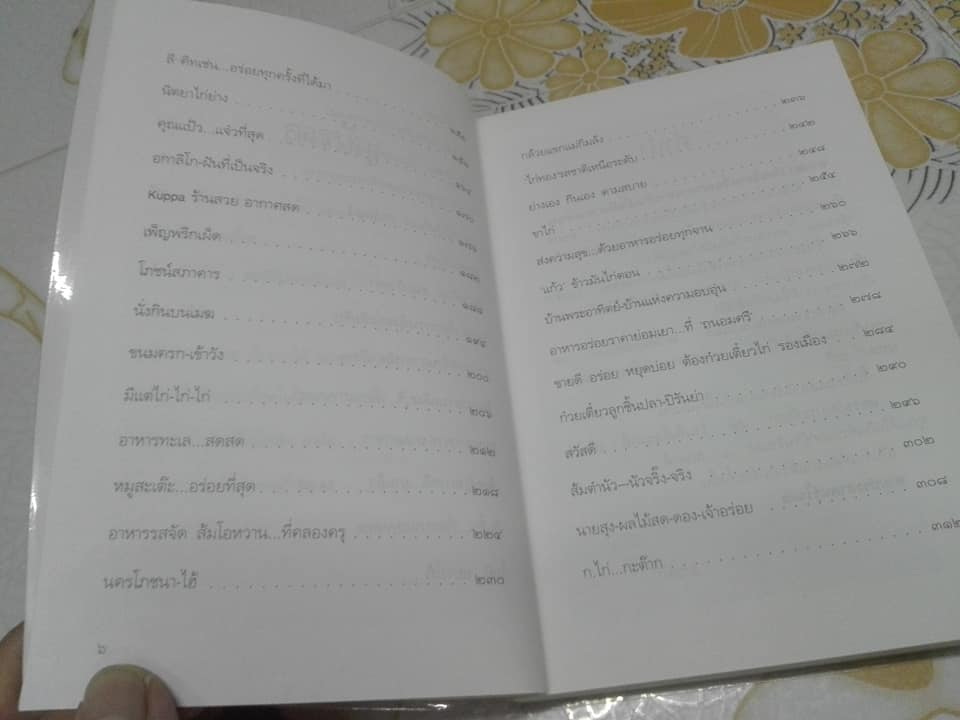 ลี-คิทเช่น...อร่อยทุกครั้งที่ได้มา
นิตยาไก่ย่าง
คุณแป๊ว...แจ๋วที่สุด
อกาลิโก-ฝันที่เป็นจริง
Kuppa ร้านสวย อากาศสด ๑๗๐
เพ็ญพริกเผ็ด ๑๗๖
โภชน์สภาคาร ๑๘๒
นั่งกินบนเมฆ ๑๘๘
ขนมครก-เข้าวัง ๑๙๔
มีแต่ไก่-ไก่-ไก่ ๒๐๐
อาหารทะเล...สดสด ๒๐๖
หมูสะเต๊ะ...อร่อยที่สุด ๒๑๒
อาหารรสจัด ส้มโอหวาน...ที่คลองครุ ๒๑๘
นครโภชนา-ไฮ้ ๒๒๔
๒๓๐
๖
กล้วยแขกแม่กิมล้ง ๒๓๖
ไก่ทอง รสชาติเหนือระดับ ๒๔๒
ย่างเอง กินเอง ตามสบาย ๒๔๘
ขาไก่ ๒๕๔
ส่งความสุข...ด้วยอาหารอร่อยทุกจาน ๒๖๐
'แก้ว' ข้าวมันไก่ตอน ๒๖๖
บ้านพระอาทิตย์-บ้านแห่งความอบอุ่น ๒๗๒
อาหารอร่อยราคาย่อมเยา...ที่ 'ถนอมศรี' ๒๗๘
ขายดี อร่อย หยุดบ่อย ต้องก๋วยเตี๋ยวไก่ รองเมือง ๒๘๔
ก๋วยเตี๋ยวลูกชิ้นปลา-ปิรันย่า ๒๙๐
สวัสดี ๒๙๖
ส้มตำนัว—นัวจริ๊ง-จริง ๓๐๒
นายสุง-ผลไม้สด-ดอง-เจ้าอร่อย ๓๐๘
ก.ไก่...กะต๊าก ๓๑๒